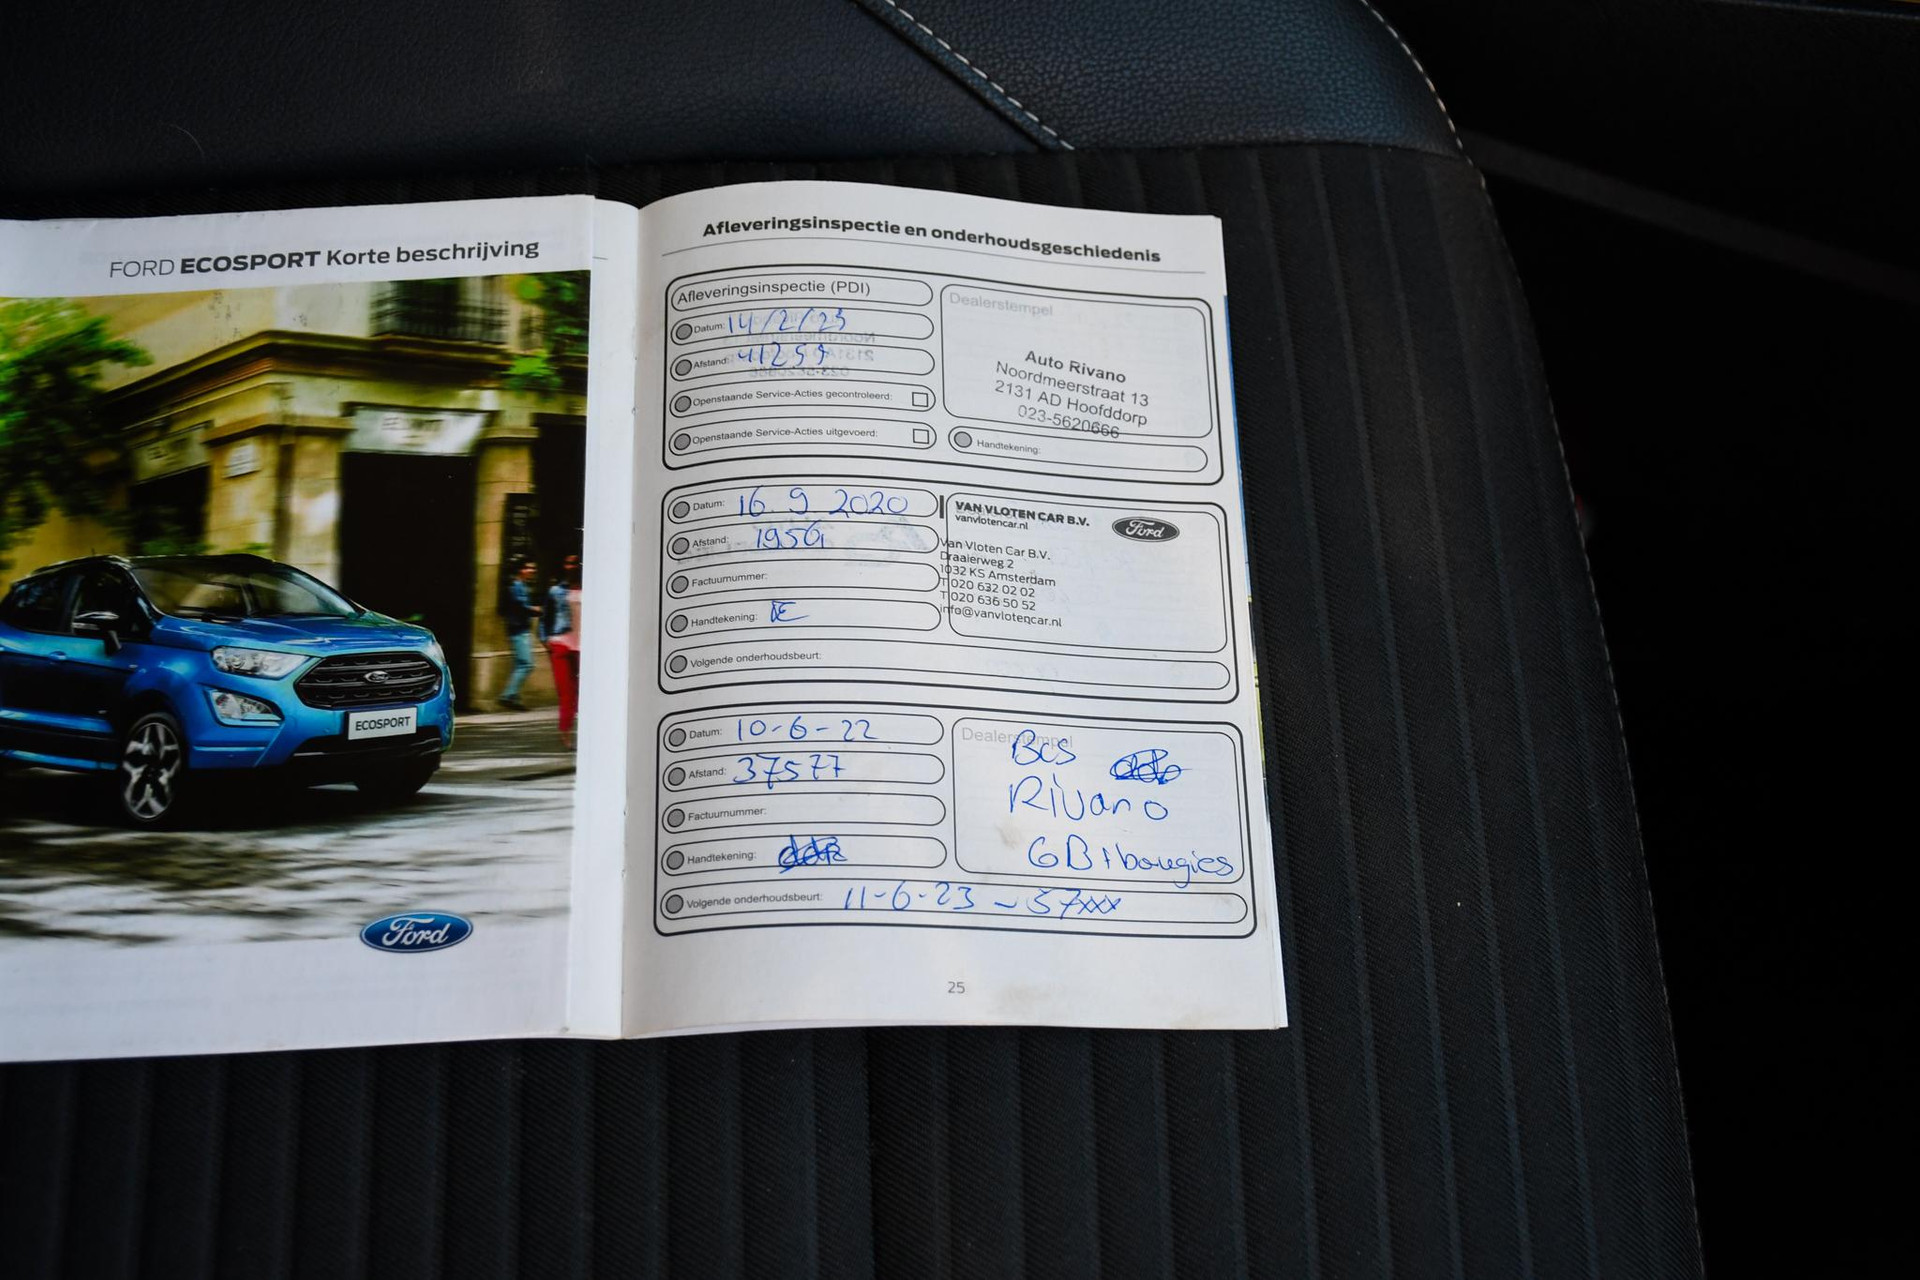 FORD ECOSPORT Korte beschrijving
ECOSPORT
Ford
Afleveringsinspectie en onderhoudsgeschiedenis
Afleveringsinspectie (PDI)
Datum: 14/2/23
Afstand: 41259
Openstaande Service-Acties gecontroleerd:
Openstaande Service-Acties uitgevoerd:
Dealerstempel
Auto Rivano
Noordmeerstraat 13
2131 AD Hoofddorp
023-5620666
Handtekening:
Datum: 16 9 2020
Afstand:
Factuurnummer:
Handtekening:
Volgende onderhoudsbeurt:
VAN VLOTEN CAR B.V.
vanvlotencar.nl
Ford
Van Vloten Car B.V.
Draaierweg 2
1032 KS Amsterdam
T 020 632 02 02
T 020 636 50 52
info@vanvlotencar.nl
Datum: 10-6-22
Afstand: 37577
Factuurnummer:
Handtekening:
Volgende onderhoudsbeurt: 11-6-23 - 57xxx
Dealerstempel
Bcs
Rivano
GB+bougies
25